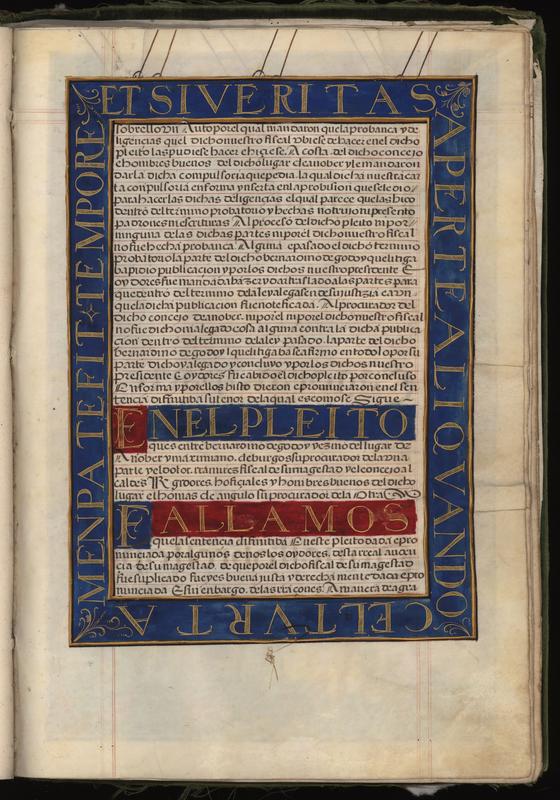 ET SI VERITAS
APERTE ALIQVANDO
CELTVR TA
MEN PATEFIT TEMPORE
sobrello vn Auto por el qual mandaron que la probança y de
ligencias quel dicho nuestro fiscal vbiese de hacer en el dicho
pleito las pudiese hacer A costa del dicho concejo
e hombres buenos del dicho lugar de anober y le mandaron
dar la dicha compulsoria que pedia la qual dicha nuestra car
ta compulsoria en forma ynserta en la probision que se le dio
para hacer las dichas deligencias el qual parece que las hico
dentro del termino probatorio y hechas no traxo ni presento
padrones ni escrituras Al proceso del dicho pleito ni por
ninguna de las dichas partes ni por el dicho nuestro fiscal
no fue hecha probança Alguna e pasado el dicho termino
probatorio la parte del dicho bernardino de godoy que litiga
ba pidio publicacion y por los dichos nuestro presidente E
oydores fue mandada hazer y dar traslado a las partes para
que dentro del termino de la ley alegasen de su justizia
que la dicha publicacion fue notificada Al procurador del
dicho concejo de anober ni por el ni por el dicho nuestro fiscal
no fue dicho ni alegado cosa alguna contra la dicha publica
cion dentro del termino de la ley pasado la parte del dicho
bernardino de godoy que litigaba se afirmo en todo lo por su
parte dicho y alegado y concluyo y por los dichos nuestro
presidente E oydores fue abido el dicho pleito por concluso
E en forma y por ellos bisto dieron e pronunciaron en el sen
tencia difinitiba su tenor de la qual es como se Sigue
EN EL PLEITO
ques entre bernardino de godoy vezino del lugar de
Anober y maximiano de burgos su procurador de la vna
parte y el dotor ramires fiscal de su magestad y el concejo al
caldes Regidores hofiçiales y hombres buenos del dicho
lugar e lhomas de angulo su procurador de la Otra
FALLAMOS
que la sentencia difinitiba En este pleito dada e pro
nunciada por algunos de nos los oydores desta real audien
cia de su magestad de que por el dicho fiscal de su magestad
fue suplicado fue y es buena justa y derechamente dada e pro
nunciada E sin enbargo de las racones A manera de agra